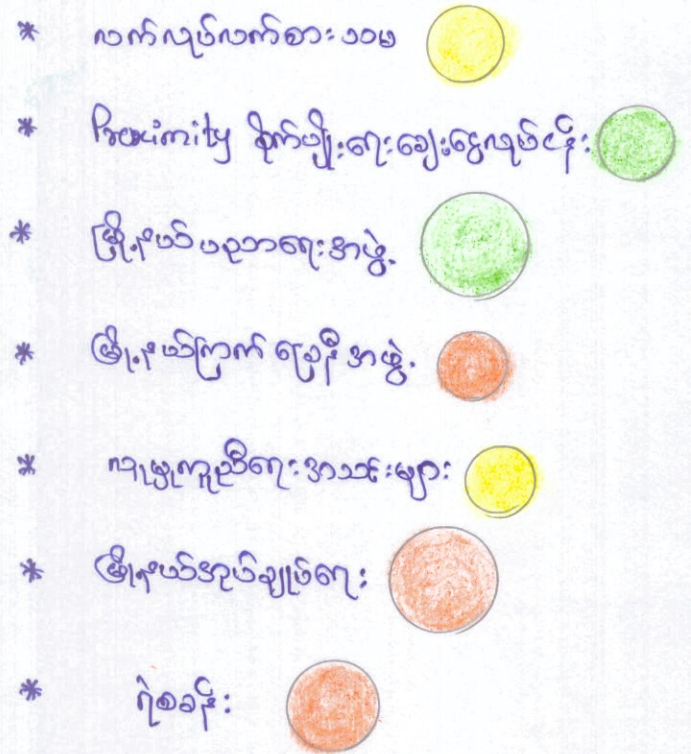 * လက်လုပ်လက်စား သမ
* Proximity စိုက်ပျိုးရေးချေးငွေလုပ်ငန်း
* မြို့နယ် ပညာရေးအဖွဲ့
* မြို့နယ်ကြက် ခြေနီ အဖွဲ့
* လူမှုကူညီရေးအသင်းများ
* မြို့နယ်အုပ်ချုပ်ရေး
* ရဲစခန်း